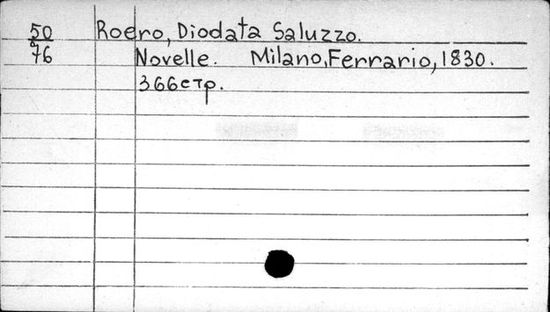 50 Roero, Diodata Saluzzo.
76 Novelle. Milano, Ferrario, 1830.
366стр.